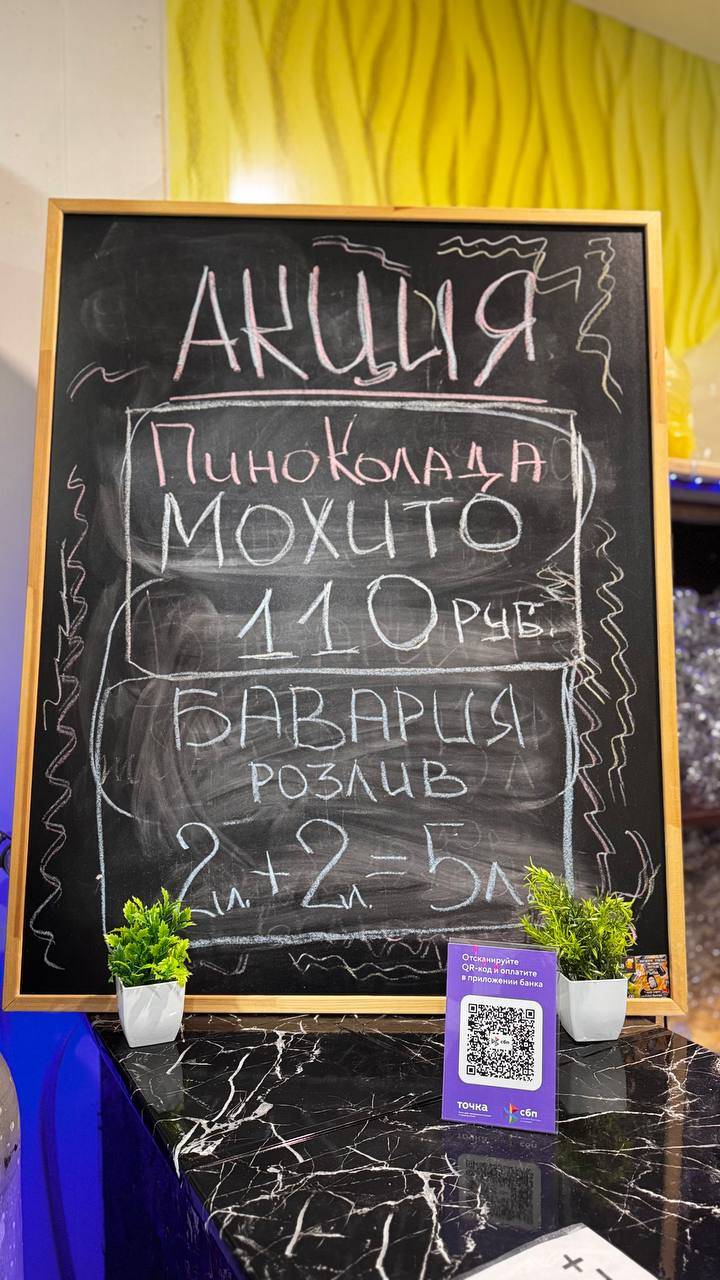 АКЦИЯ
ПиноКолада
МОХИТО
110 РУБ.
БАВАРИЯ
РОЗЛИВ
2л.+2л.=5л.
Отсканируйте
QR-код и оплатите
в приложении банка
сбп
точка
сбп